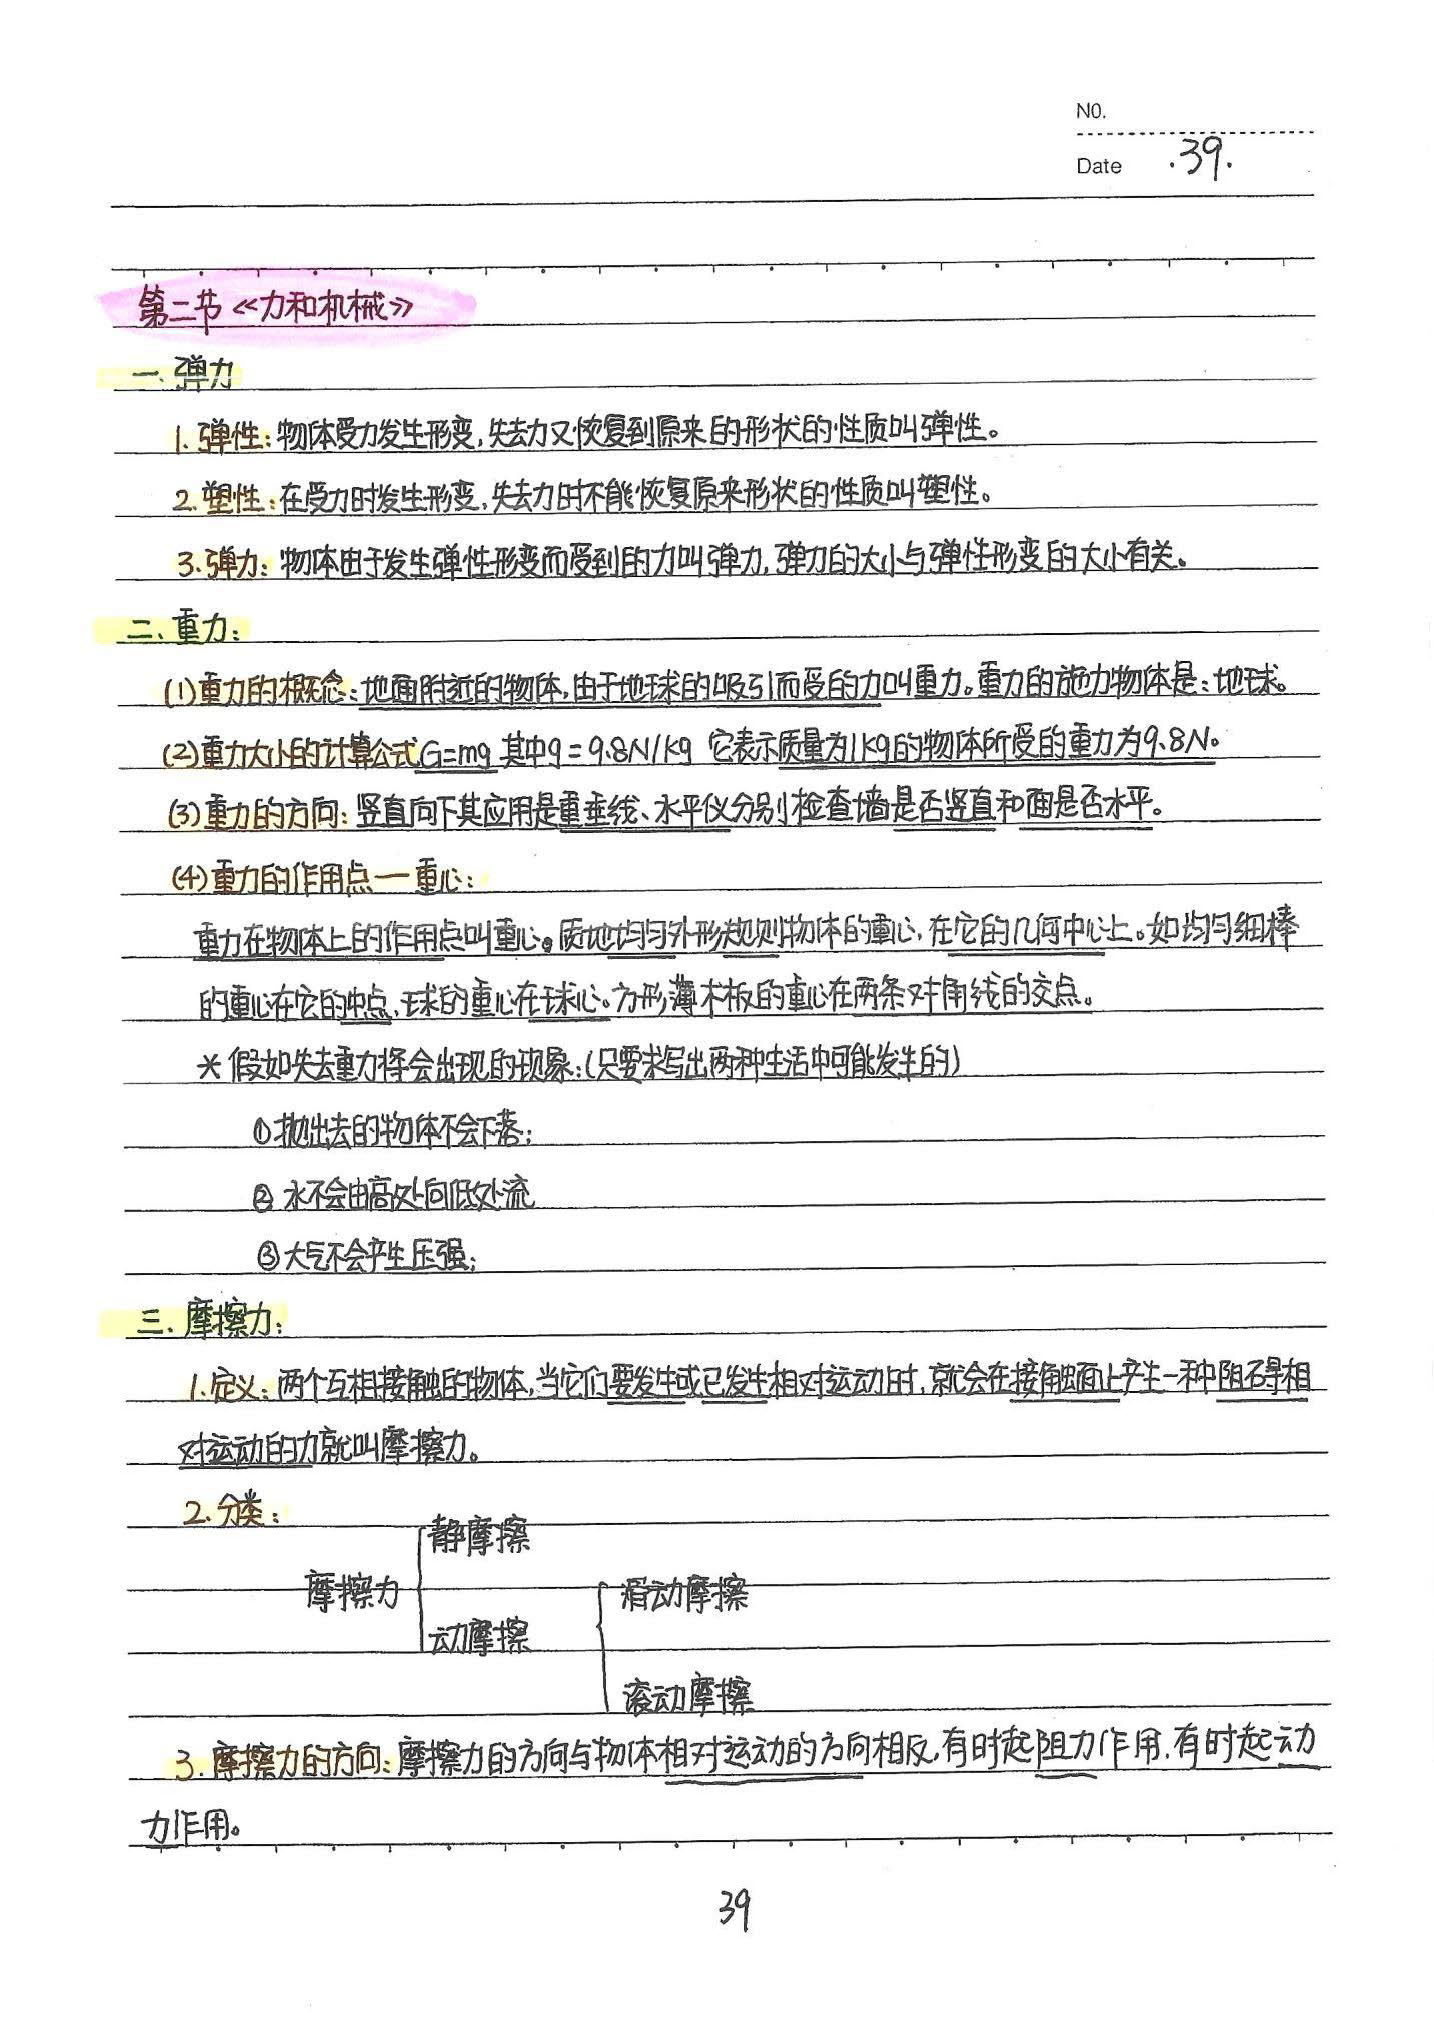 NO.
Date .39.
第二节《力和机械》
一.弹力
1.弹性:物体受力发生形变,失去力又恢复到原来的形状的性质叫弹性。
2.塑性:在受力时发生形变,失去力时不能恢复原来形状的性质叫塑性。
3.弹力:物体由于发生弹性形变而受到的力叫弹力,弹力的大小与弹性形变的大小有关。
二、重力:
(1)重力的概念:地面附近的物体,由于地球的吸引而受的力叫重力。重力的施力物体是:地球。
(2)重力大小的计算公式G=mg 其中g=9.8N/kg 它表示质量为1kg的物体所受的重力为9.8N。
(3)重力的方向:竖直向下其应用是重垂线、水平仪分别检查墙是否竖直和面是否水平。
(4)重力的作用点—重心:
重力在物体上的作用点叫重心。质地均匀外形规则物体的重心,在它的几何中心上。如均匀细棒
的重心在它的中点、球的重心在球心。方形薄木板的重心在两条对角线的交点。
*假如失去重力将会出现的现象:(只要求写出两种生活中可能发生的)
①抛出去的物体不会下落;
②水不会由高处向低处流
③大气不会产生压强;
三.摩擦力:
1.定义:两个互相接触的物体,当它们要发生或已发生相对运动时,就会在接触面上产生一种阻碍相
对运动的力就叫摩擦力。
2.分类:
静摩擦
摩擦力
滑动摩擦
动摩擦
滚动摩擦
3.摩擦力的方向:摩擦力的方向与物体相对运动的方向相反,有时起阻力作用,有时起动
力作用。
39